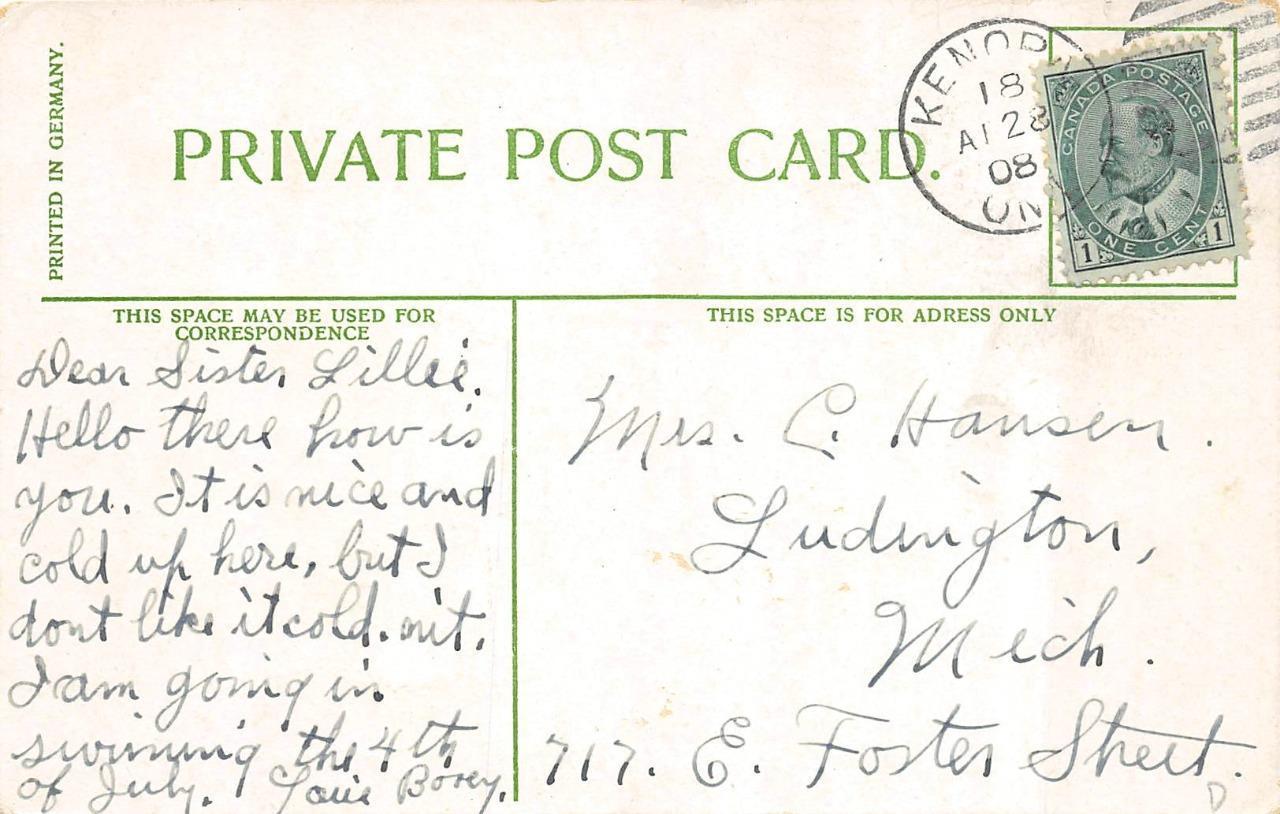 PRINTED IN GERMANY.
PRIVATE POST CARD.
KENORA
18
28
08
ONT
CANADA POSTAGE
ONE CENT
1 1
THIS SPACE MAY BE USED FOR
CORRESPONDENCE
Dear Sister Lillie.
Hello there how is
you. It is nice and
cold up here, but I
dont like it cold. nit.
I am going in
swimming the 4th
of July.
THIS SPACE IS FOR ADRESS ONLY
Mrs. C. Hansen.
Ludington,
Mich.
717. E. Foster Street.
D